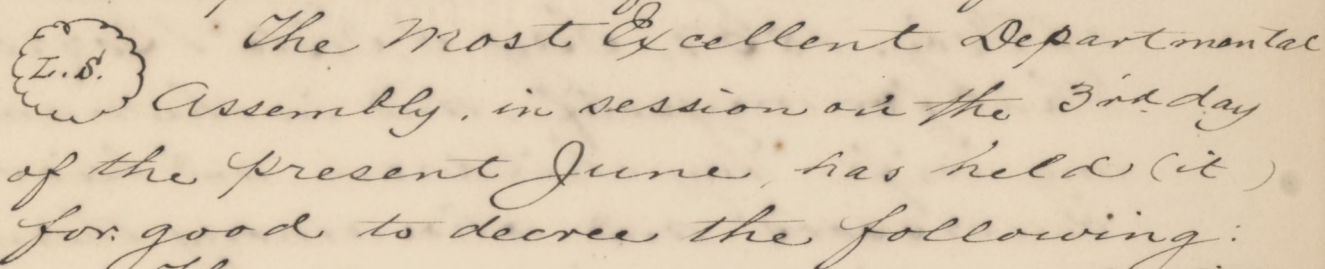 L.S. The Most Excellent Departmental
Assembly, in session on the 3rd day
of the present June, has held (it)
for good to decree the following: